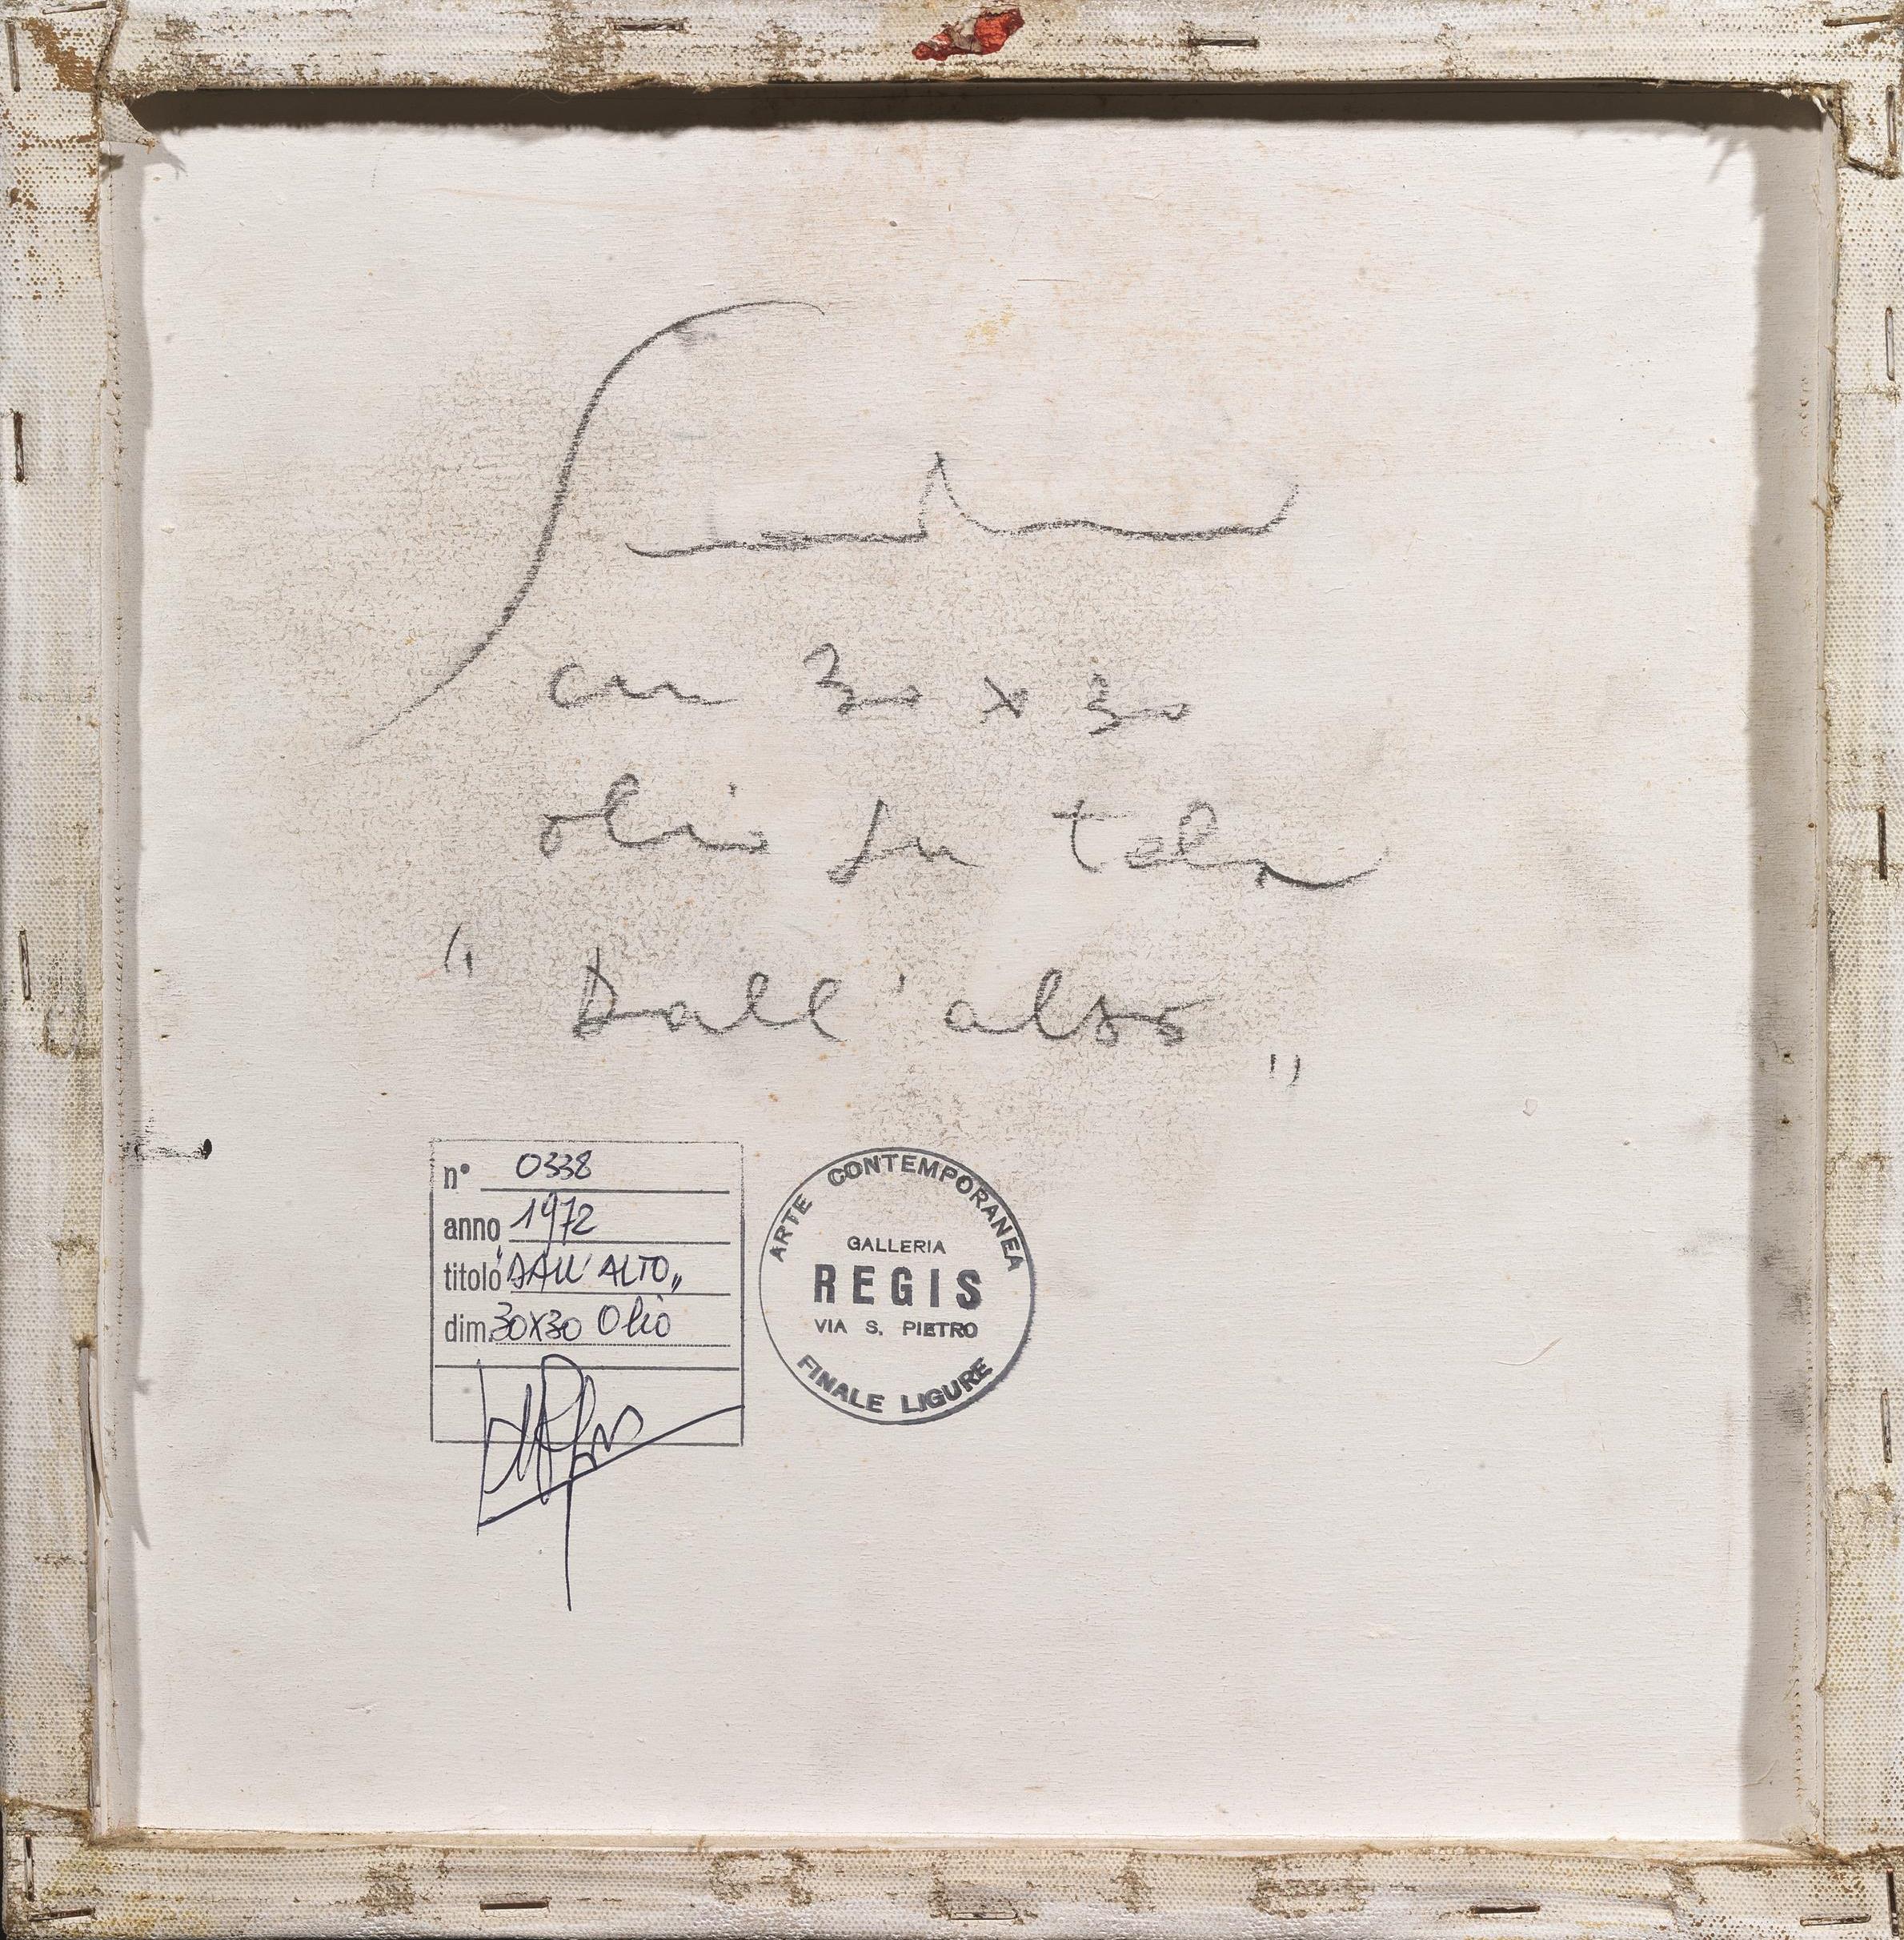 cm 30 x 30
olio su tela
" Dall'alto "
n° 0338
anno 1972
titolo "DALL' ALTO"
dim. 30X30 Olio
ARTE CONTEMPORANEA
GALLERIA
REGIS
VIA S. PIETRO
FINALE LIGURE